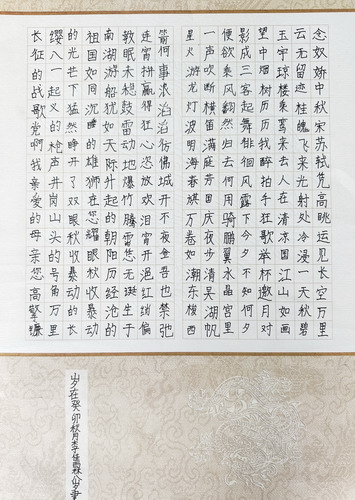 念奴娇中秋宋苏轼凭高眺远见长空万里
云无留迹桂魄飞来光射处冷浸一天秋碧
玉宇琼楼乘鸾来去人在清凉国江山如画
望中烟树历历我醉拍手狂歌举杯邀月对
影成三客起舞徘徊风露下今夕不知何夕
便欲乘风翻然归去何用骑鹏翼水晶宫里
一声吹断横笛满庭芳国庆夜步清吴湖帆
星火游龙灯波明海春嬉万卷如潮东楼西
箭何事浪滔滔彷佛城开不夜金吾也禁弛
连宵拼赢得狂心恣放欢泪宵开红绡偏
教眠未稳鼓雷动地爆竹腾霄您诞生于
南湖游船犹如天际升起的朝阳历经沧的
祖国如同沉睡的雄狮在您耀眼秋收暴动
的光芒下猛然睁开了双眼秋收暴动的长
缨八一起义的枪声井岗山头的号角万里
长征的战歌党啊我亲爱的母亲您高擎镰
岁在癸卯秋月李佳霖书